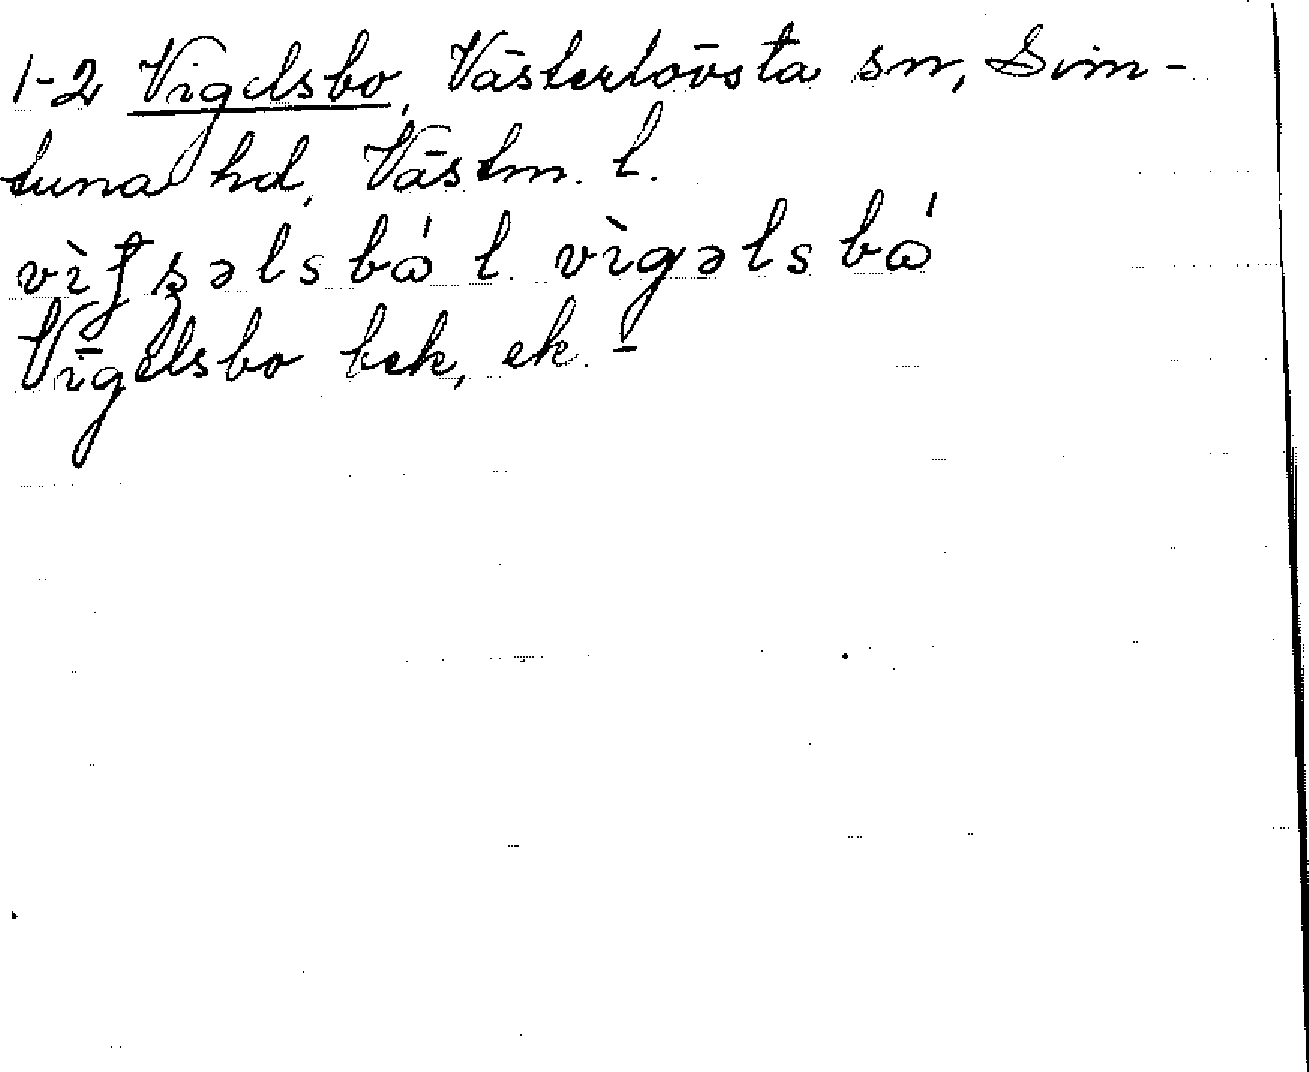 1-2 Vigelsbo, Västerlövsta sn, Sim-
tuna hd, Västm. l.
l. vìgəlsbɷ́
Vigelsbo bek, ek. -